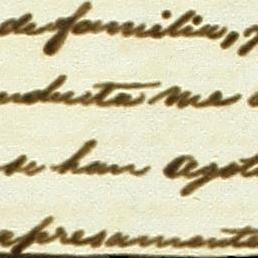 de familia,
nducta me
se han agot
apresamente